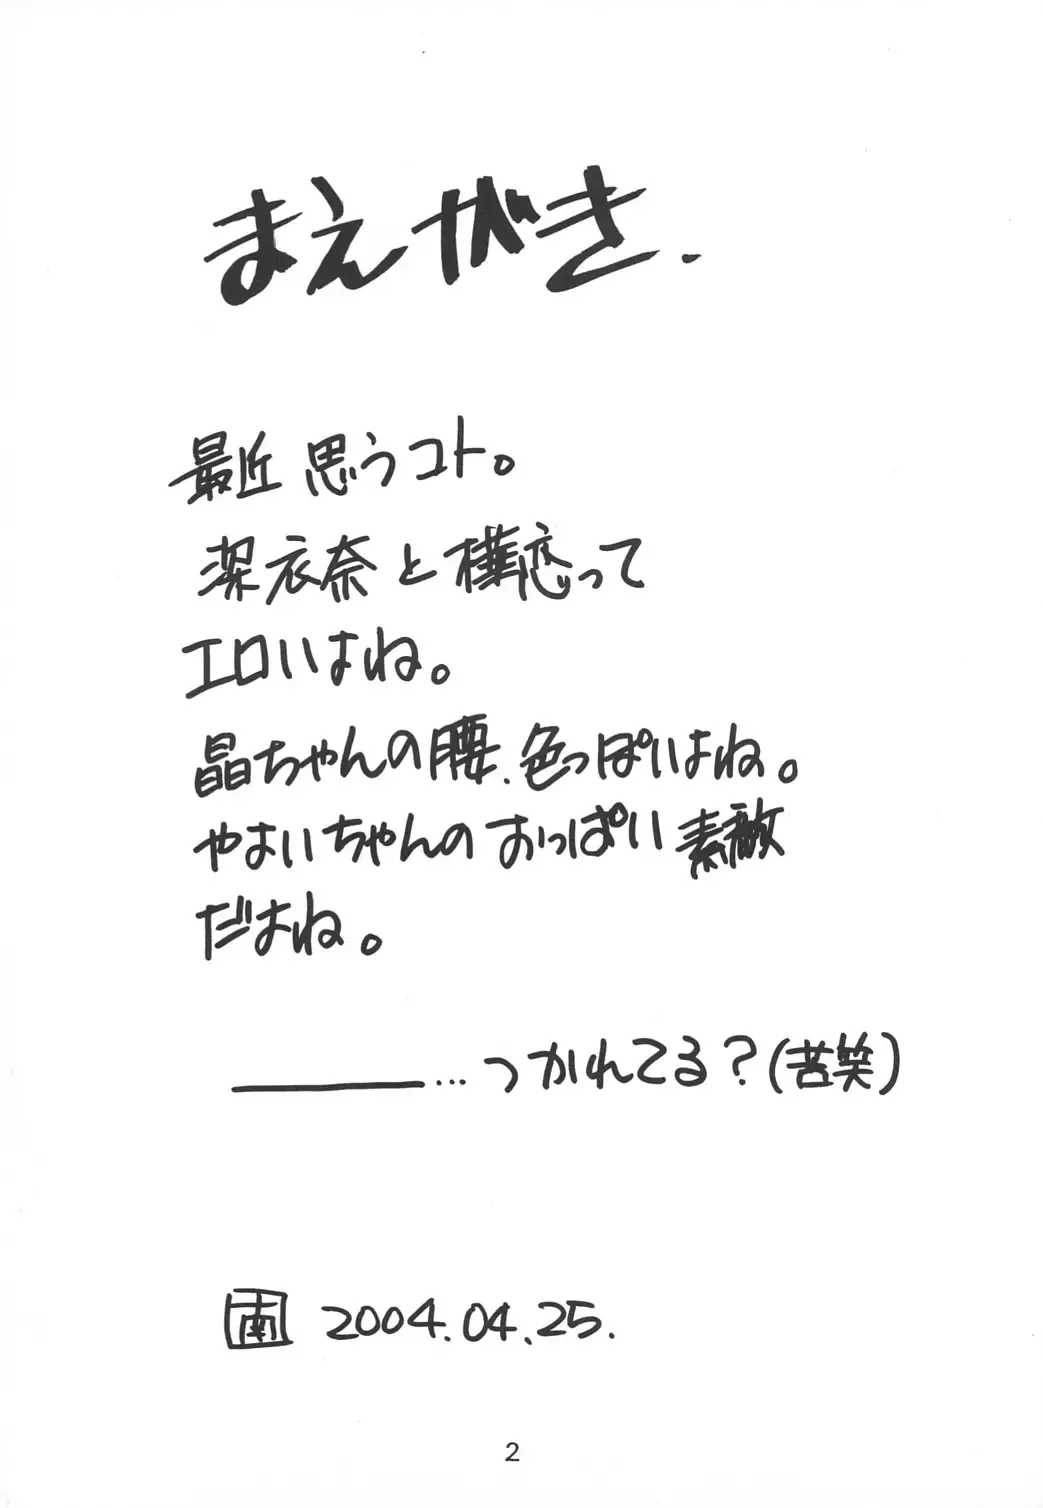 まえがき.
最近 思うコト。
潔衣奈と樺恋って
エロいよね。
晶ちゃんの腰、色っぽいよね。
やよいちゃんのおっぱい素敵
だよね。
――…つかれてる?(苦笑)
南 2004.04.25.
2